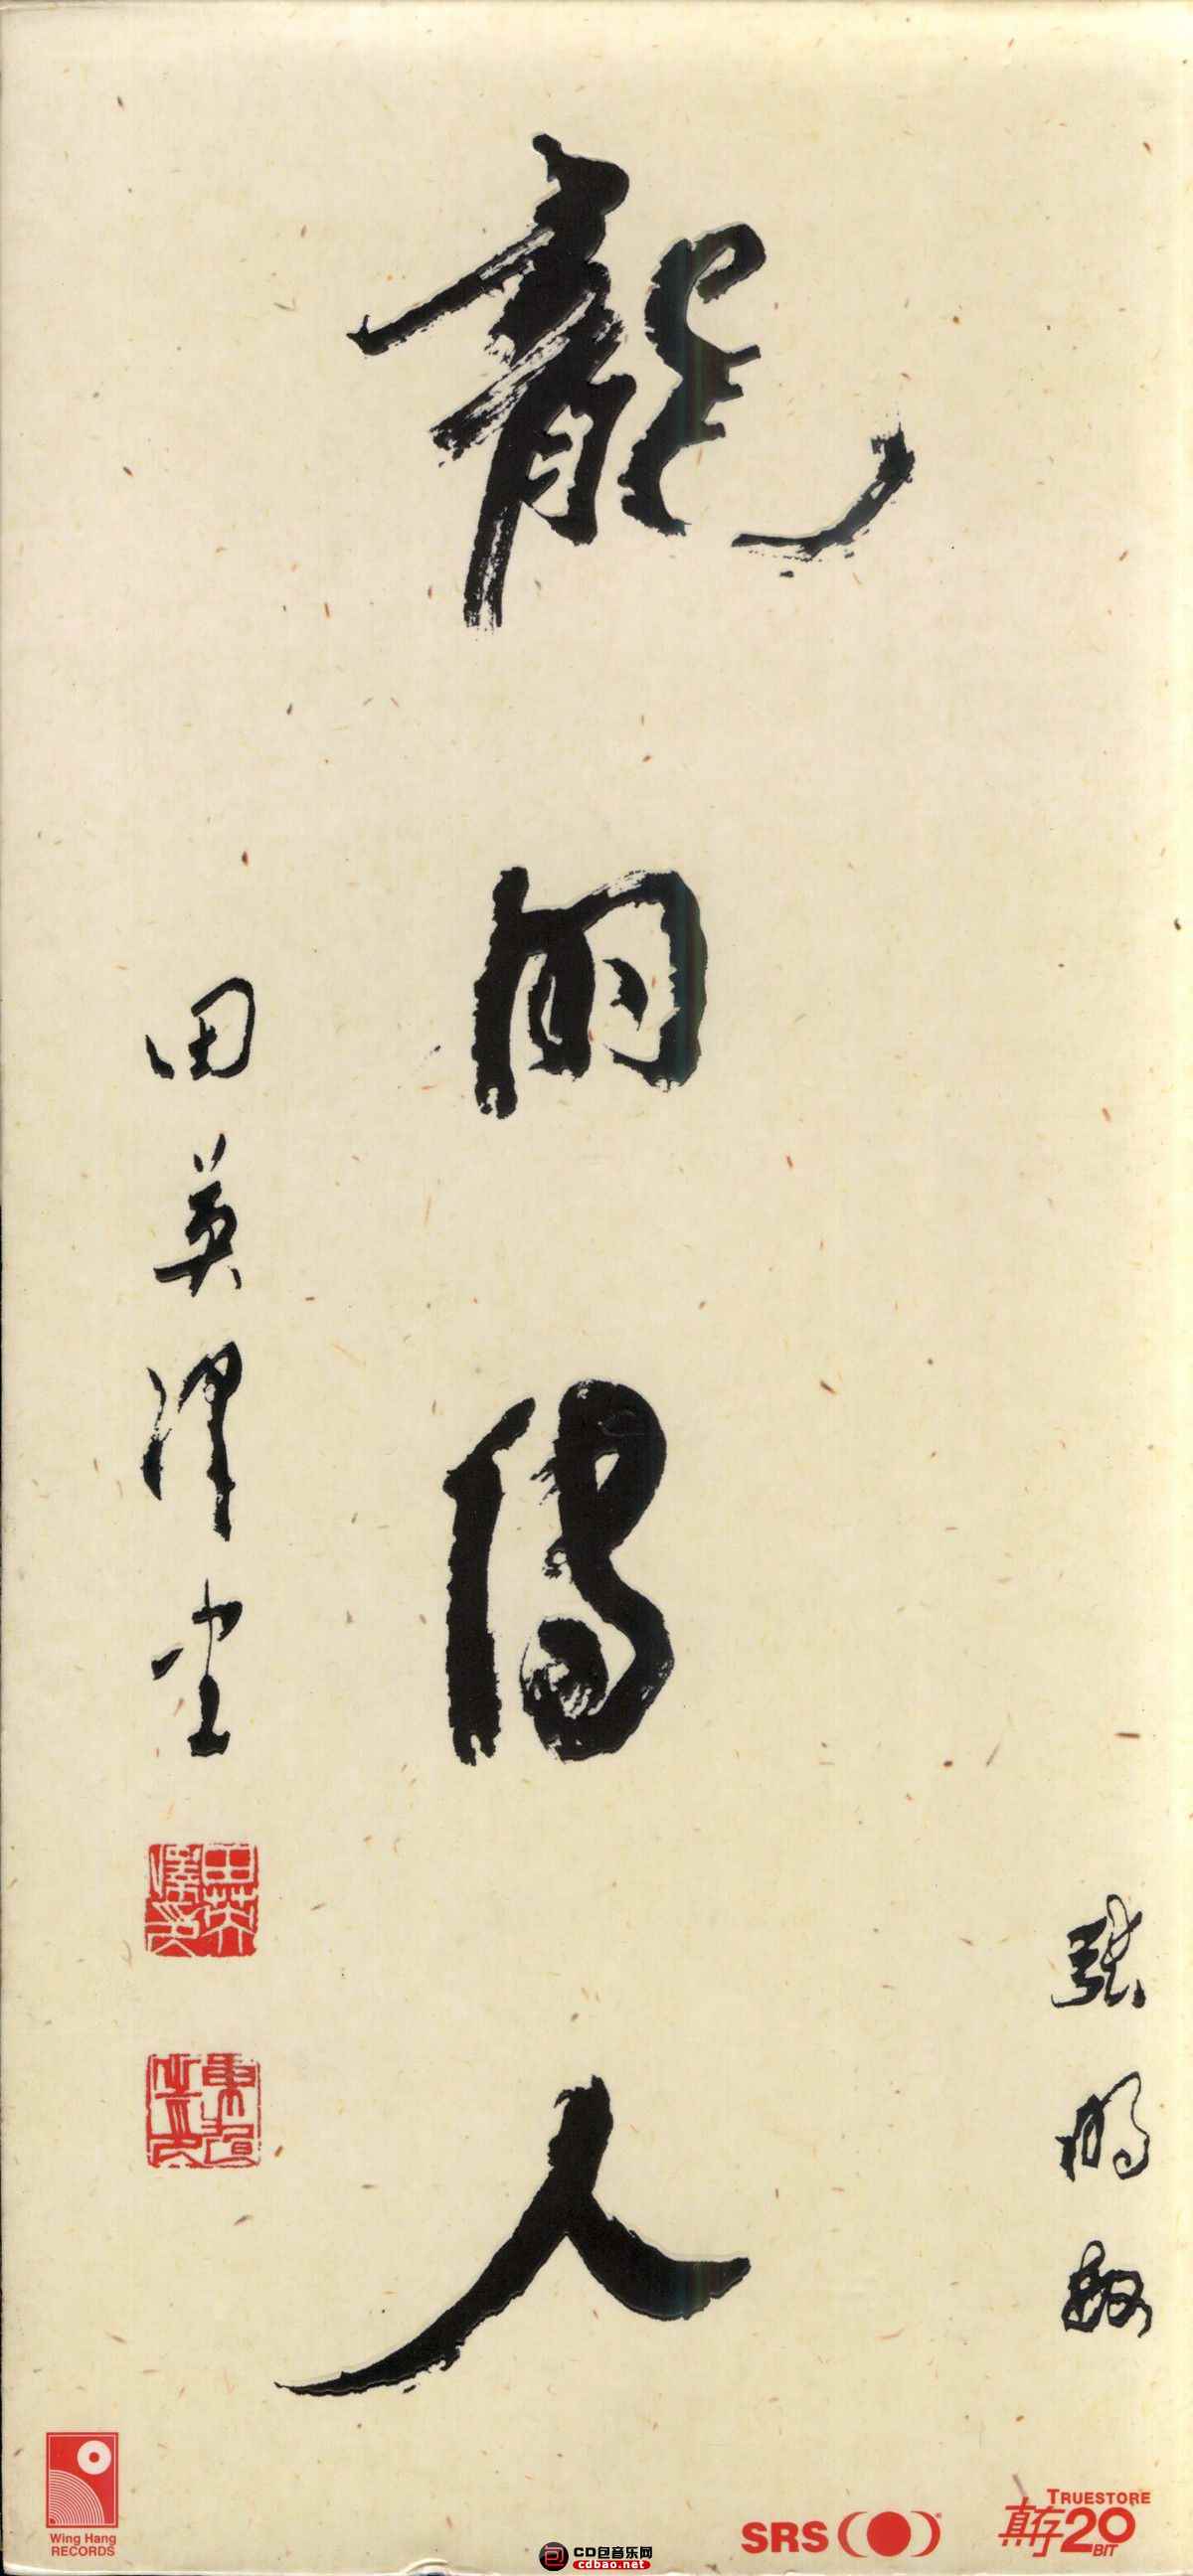 龍的傳人
張明敏
田英澤书
田英澤印
Wing Hang
RECORDS
SRS
TRUESTORE
真存20
BIT
CD包音乐网
cdbao.net